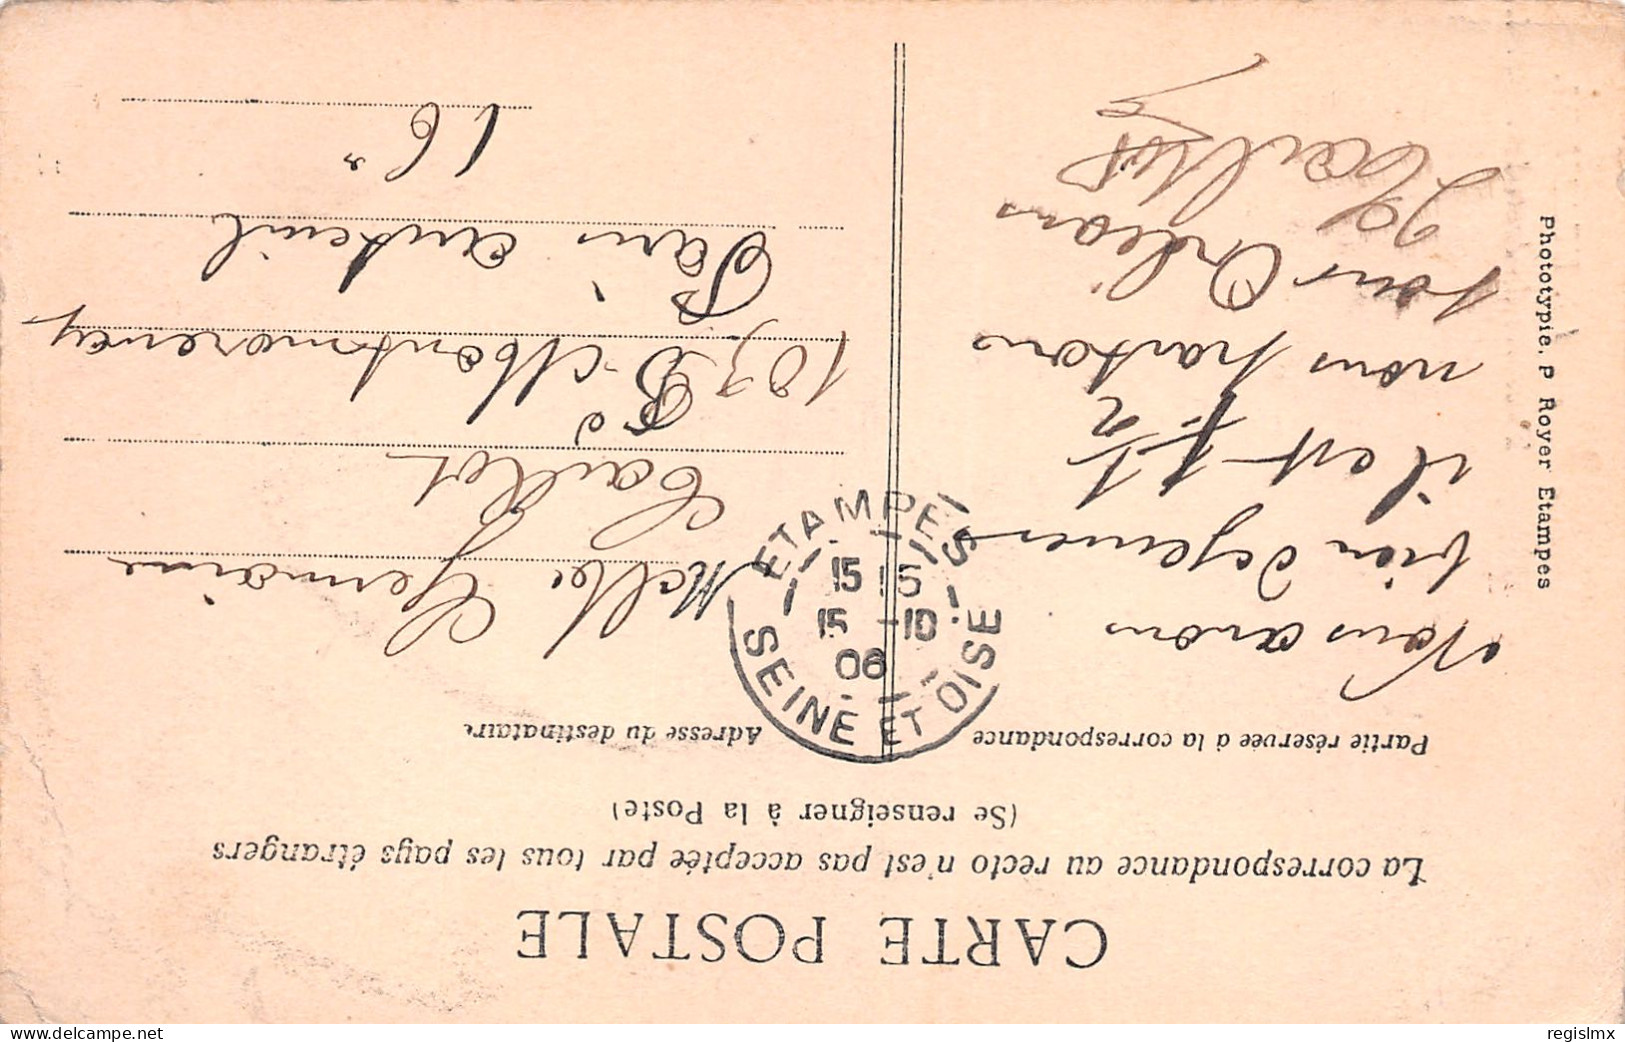 CARTE POSTALE
La correspondance au recto n'est pas acceptée par tous les pays étrangers
(Se renseigner à la Poste)
Partie réservée à la correspondance
Adresse du destinataire
Nous avons
bien dejeuner
il est 1h 1/2
nous partons
pour Orléans
Melle Germaine
Caillot
103 Bd Montmorency
Paris auteuil
16e
ETAMPES
15 15
15 -10
06
SEINE ET OISE
Phototypie. P Royer Etampes
www.delcampe.net
regislmx